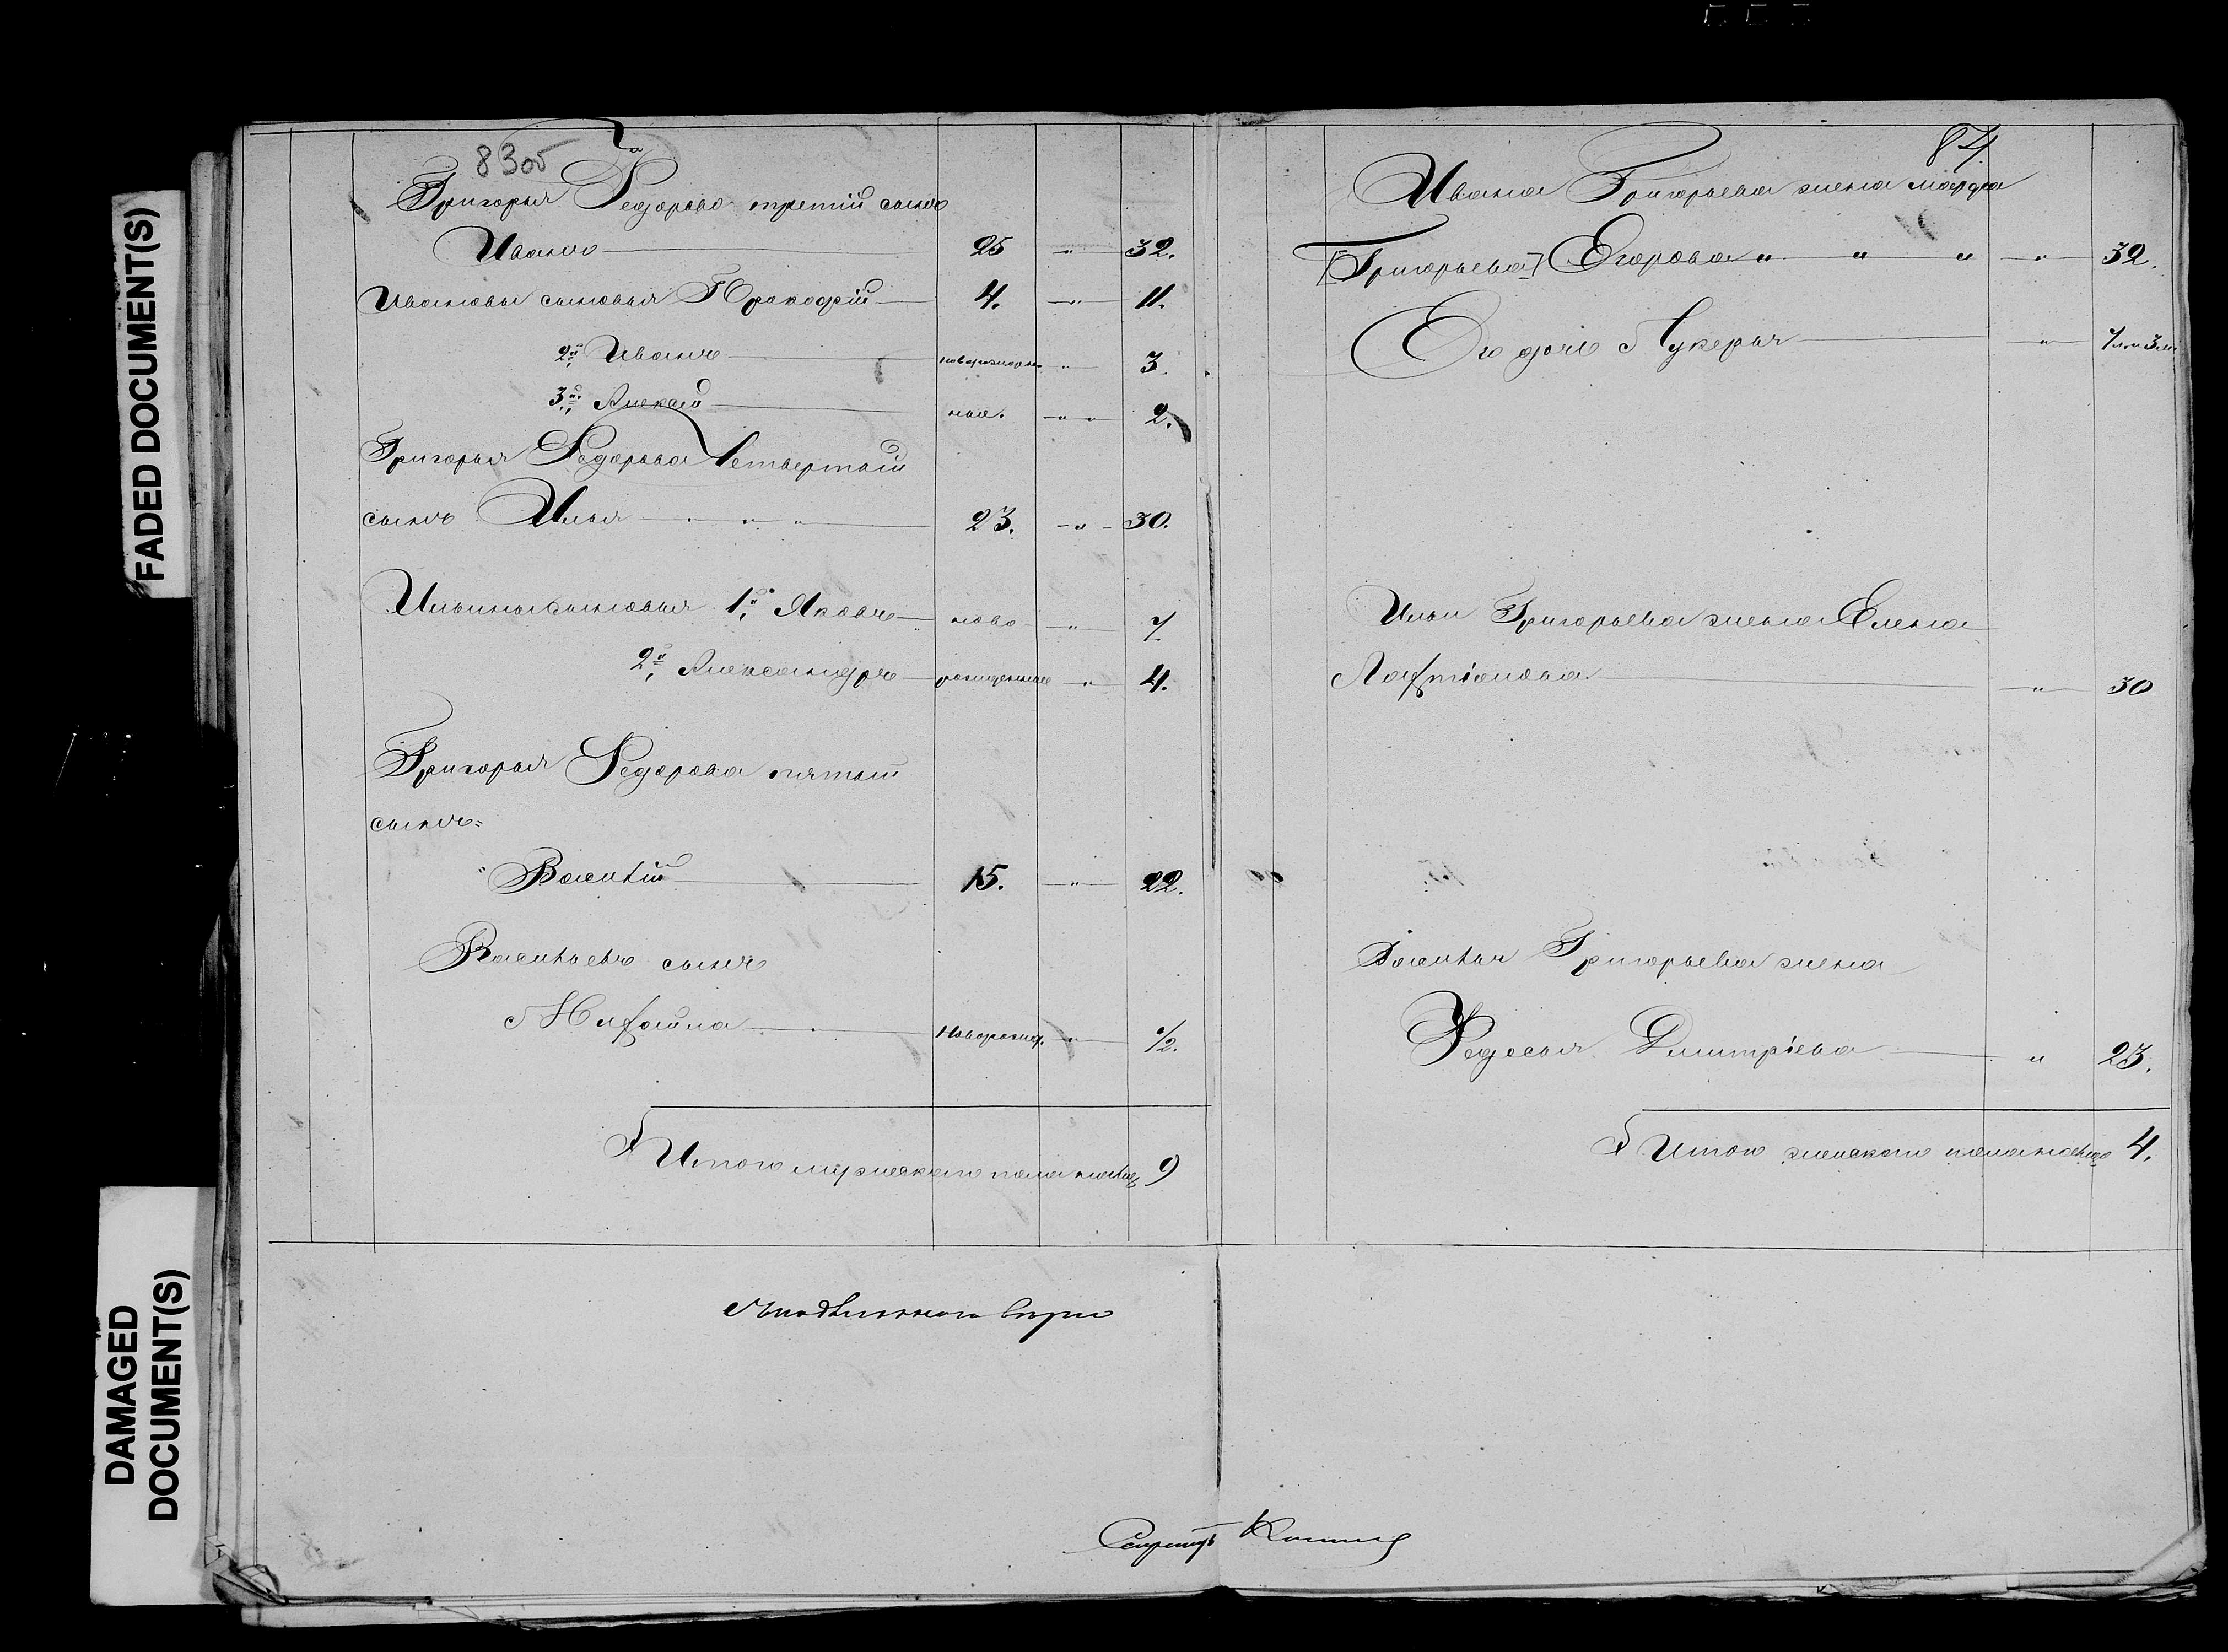 FADED DOCUMENT(S)
DAMAGED
DOCUMENT(S)
83об
Григорья Федорова третій сынъ
Иванъ 25 " 32.
Ивановы сыновья Прокофій 4. " 11.
2й Иванъ новорожден. " 3.
3й Алексей ные. " 2.
Григорья Федорова Четвертый
сынъ Илья 23. " 30.
Ильины сыновья 1й Яковъ ново " 7
2й Александръ рожденные " 4.
Григорья Федорова пятый
сынъ
Васильй 15. " 22.
Васильевъ сынъ
Михайла Новорожд. " 1/2.
Итого мужескаго пола налицо 9
84.
Ивана Григорьева жена Марфа
[Григорьева] Егорова " " " " 32.
Его дочь Лукерья " 7 л. и 3 м.
Ильи Григорьева жена Елена
Лаврентіова " 30
Василья Григорьева жена
Федосья Дмитріева " 23.
Итого женскаго пола налицо 4.
Секретарь